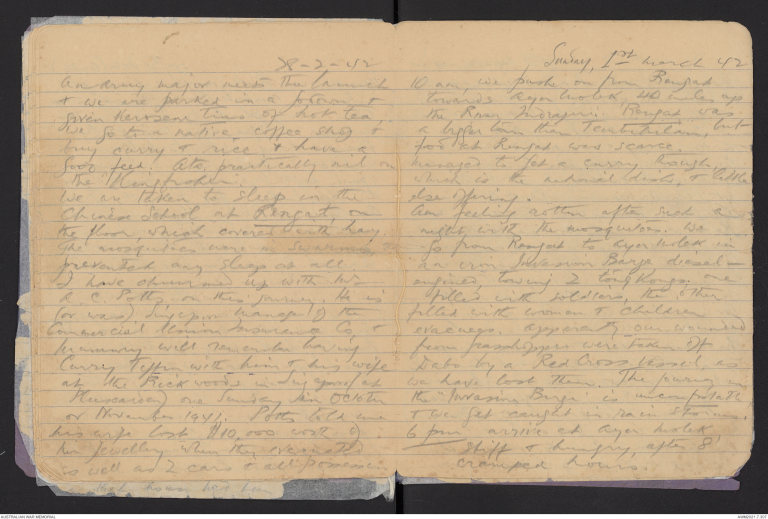 28-2-42
An army major meets the launch
& we are parked in a godown &
given kerosene tins of hot tea,
we go to a native coffee shop &
buy curry & rice & have a
good feed. Ate practically nil on
the "Kingbroker.
We are taken to sleep in the
Chinese School at Rengat, on
the floor which covered with hay.
The mosquitoes were in swarms, &
prevented any sleep at all.
I have chummed up with Mr
A. C. Potts, on this journey. He is
(or was) Singapore Manager of the
Commercial Union Insurance Co, &
Mummy will remember having
Curry Tiffin with him & his wife
at the Rickwoods in Singapore at
one Sunday in October
or November 1941. Potts told me
his wife lost $10,000 worth of
her jewellery when they evacuated
as well as 2 cars & all possessions
Sunday, 1st March 42
10 am, we push on from Rengat
towards Ayer Molek, 40 miles up
the River Indragiri. Rengat was
a bigger town than Tembilahan, but
food at Rengat was scarce.
managed to get a curry though,
which is the national dish, & little
else offering.
Am feeling rotten after such a
night with the mosquitoes. We
go from Rengat to Ayer Molek in
an iron Invasion Barge diesel-
engined, towing 2 tongkongs. one
filled with soldiers, the other
filled with women & children
evacuees. Apparently our wounded
from Grasshopper were taken off
Dabo by a Red Cross vessel, as
we have lost them. The journey in
the "Invasion Barge" is uncomfortable
& we get caught in rain storms.
6 pm arrive at Ayer Molek
stiff & hungry, after 8
cramped hours.
AUSTRALIAN WAR MEMORIAL